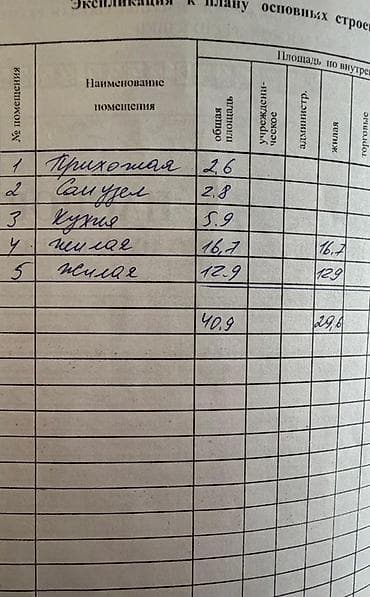 Экспликация к плану основных строе
Площадь по внутрен
№ помещения
Наименование помещения
общая площадь
учрежденическое
администр.
жилая
торговые
1 Прихожая 2,6
2 Сан узел 2.8
3 Кухня 5.9
4 жилая 16,7 16.7
5 жилая 12.9 12.9
40.9 29,6